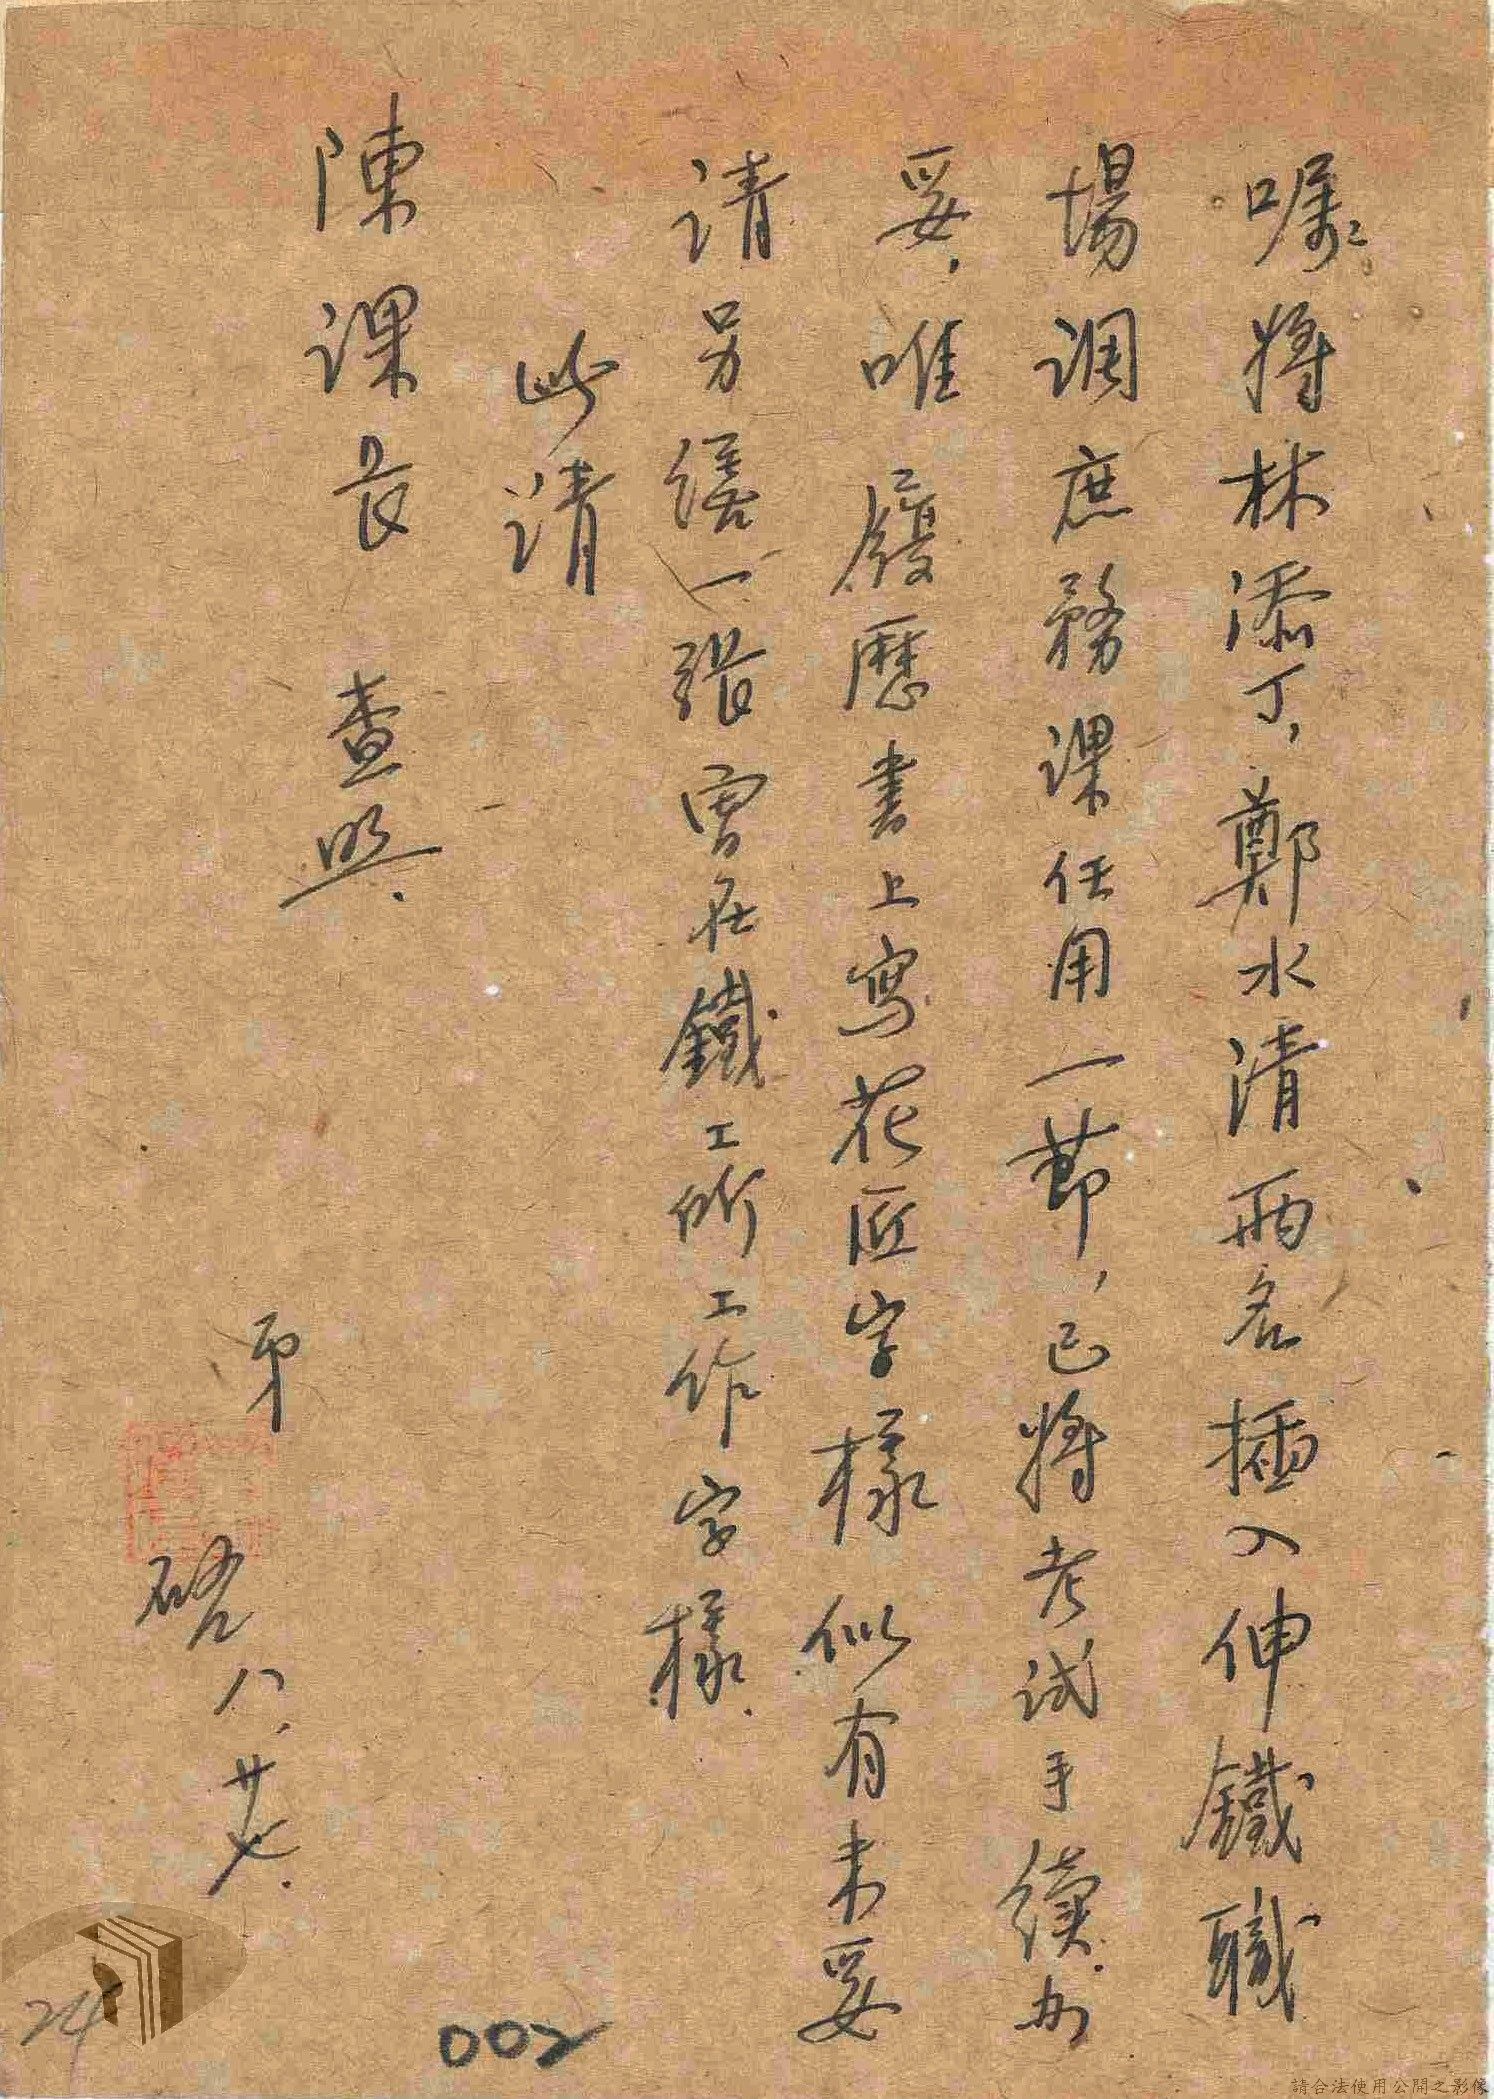 嘱將林添丁,鄭水清兩名插入伸鐵職
場調庶務課任用一節,已將考試手續办
妥,唯履歷書上寫花匠字樣似有未妥
请另繕一張曾在鐵工所工作字樣.
此请
陳課長 查照.
弟
八.廿七.
24
002
請合法使用公開之影像